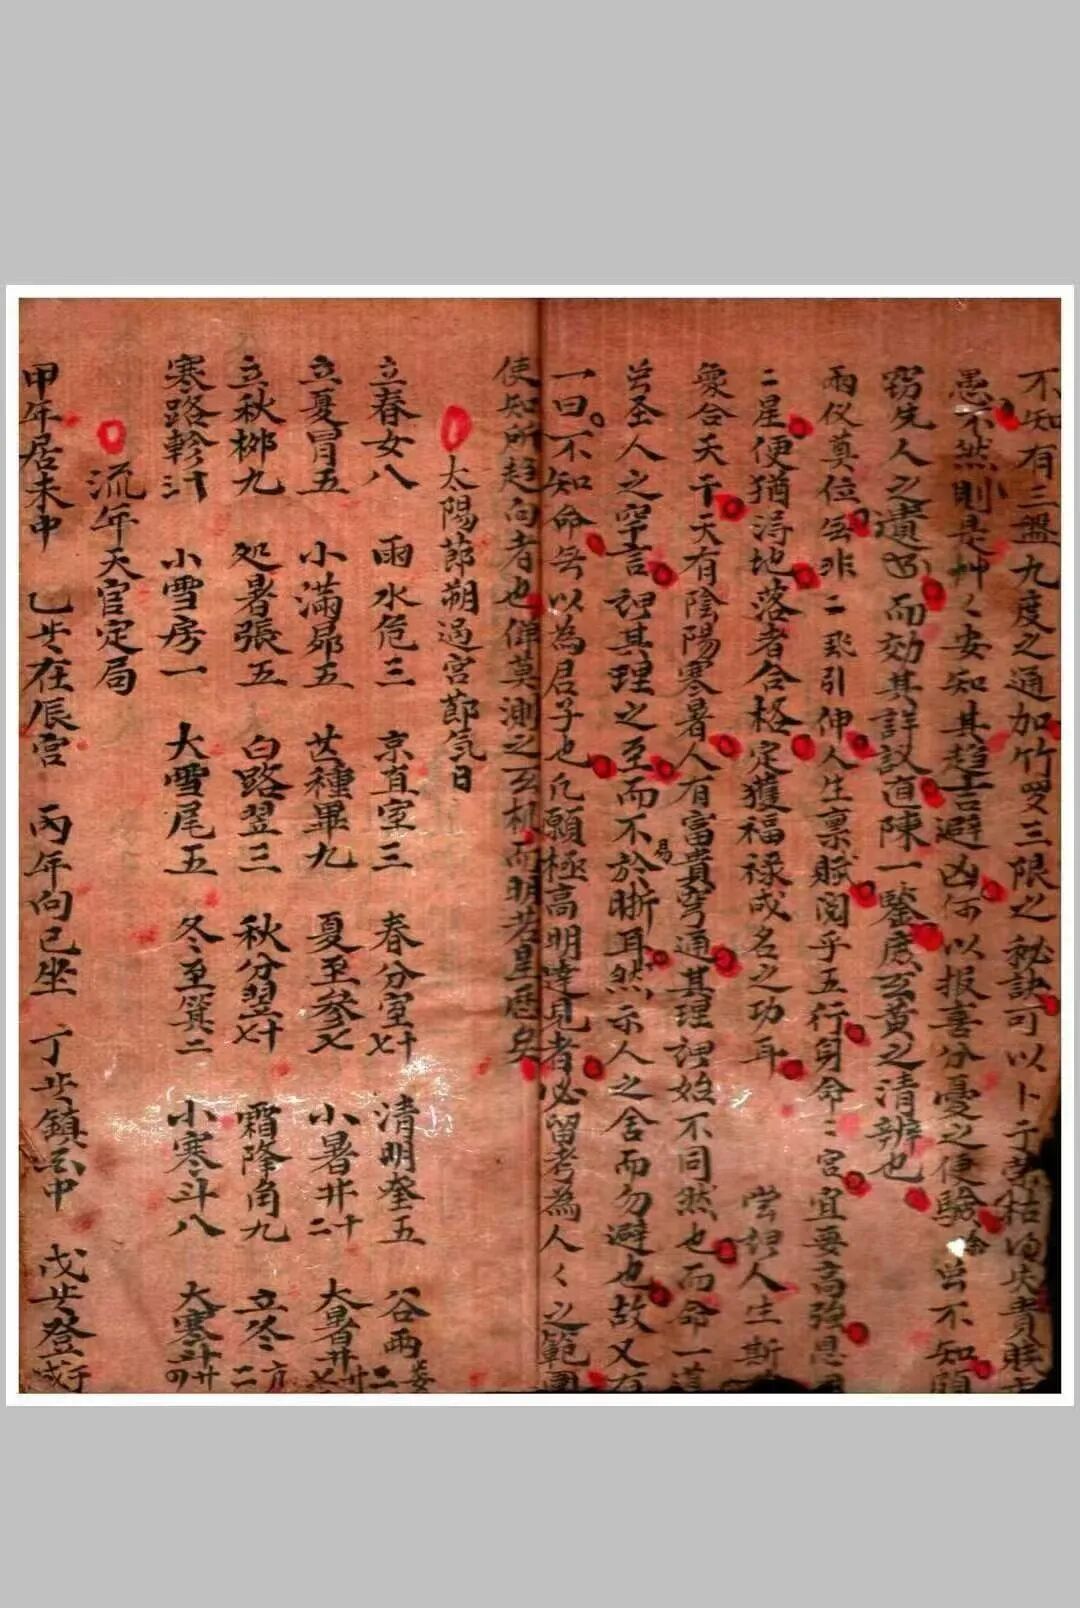 不知有三盤九度之通加竹罗三限之秘訣可以卜子荣枯得失貴賎
愚不然則是艸〻安知其趋吉避凶何以报喜分憂之便驗 曾不知
窃先人之遺 而効其詳議直陳一鑒底玄黄之清辨也
兩仪奠位 二 引伸人生禀賦関乎五行身命二宫宜要高強恩
二星便猶得地落者合格定獲福禄成名之功耳 嘗 人生斯
象合天干天有陰陽寒暑人有富貴窮通其理 始不同然也而命一道
曾圣人之罕言 其理之至而不易於断耳然示人之舍而勿避也故又有
一曰不知命无以為君子也凡願極高明達見者必留考為人〻之範圍
使知所趋向者也俾莫測之玄机而明若星曆矣
太陽莭朔過宮莭気日
立春女八 雨水危三 京直室三 春分室七十 清明奎五 谷雨婁二
立夏胃五 小滿昴五 芒種畢九 夏至参七 小暑井十二 大暑井廿七
立秋柳九 処暑張五 白路翌三 秋分翌七十 霜降角九 立冬亢二
寒路軫 小雪房一 大雪尾五 冬至箕二 小寒斗八 大寒斗廿四
流年天官定局
甲年居未申 乙步在辰宮 丙年向巳坐 丁步鎮 中 戊步登于戌